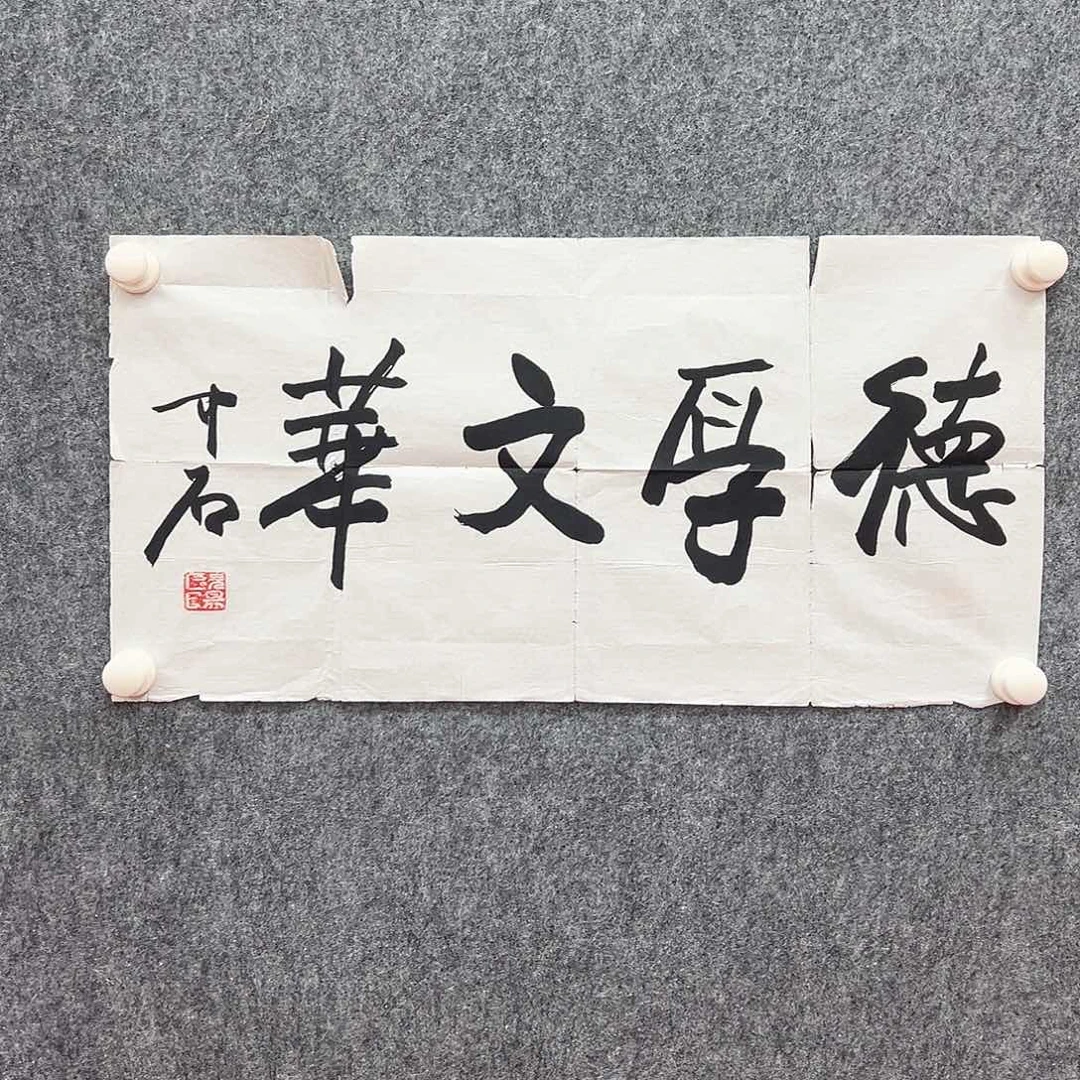 德厚文華
中石